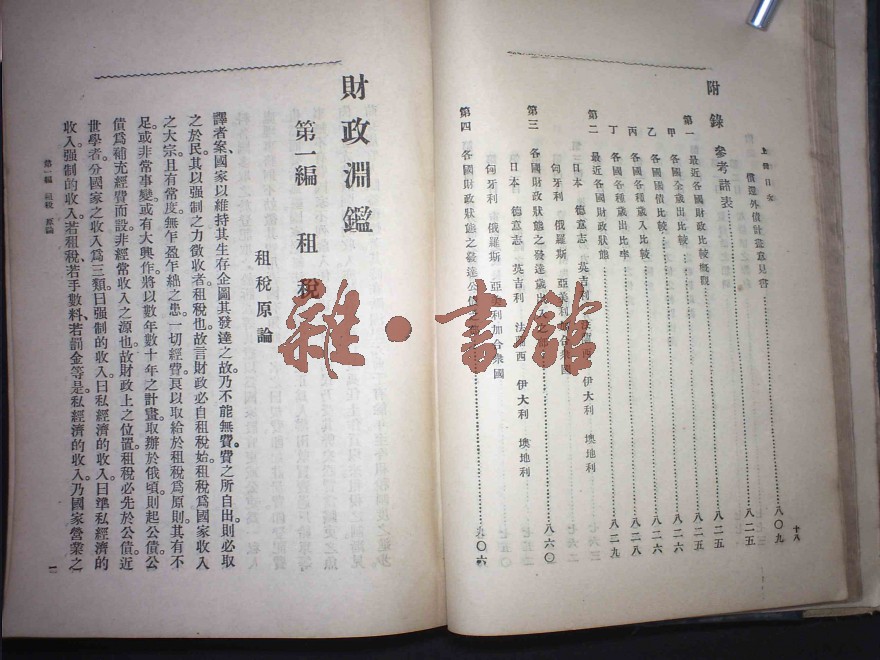 上冊目次
十八
償還外債計畫意見書……八〇九
附錄 參考諸表……八二五
第一 最近各國財政比較概觀……八二五
甲 各國全歲出比較……八二六
乙 各國國債比較……八二六
丙 各國各種歲入比較……八二八
丁 各國各種歲出比率……八二九
第二 最近各國財政狀態
日本 德意志 英吉利 法 西 伊大利 墺地利
匈牙利 俄羅斯 亞美利加合衆國
第三 各國財政狀態之發達歲出入……八六〇
日本 德意志 英吉利 法 西 伊大利 墺地利
匈牙利 俄羅斯 亞 利加合衆國
第四 各國財政狀態之發達公債……九〇六
財政淵鑑
第一編 租稅
租稅原論
譯者案、國家以維持其生存企圖其發達之故、乃不能無費。費之所自出、則必取
之於民。其以强制之力徵收者、租稅也。故言財政必自租稅始。租稅爲國家收入
之大宗。且有常度、無乍盈乍絀之患。一切經費、良以取給於租稅爲原則。其有不
足、或非常事變、或有大興作、將以數年數十年之計畫、取辦於俄頃、則起公債。公
債爲補充經費而設、非經常收入之源也。故財政上之位置、租稅必先於公債。近
世學者、分國家之收入爲三類。曰强制的收入、曰私經濟的收入、曰準私經濟的
收入。强制的收入、若租稅、若手數料、若罰金等是。私經濟的收入、乃國家營業之
第一編 租稅 原論
一
雜·書館